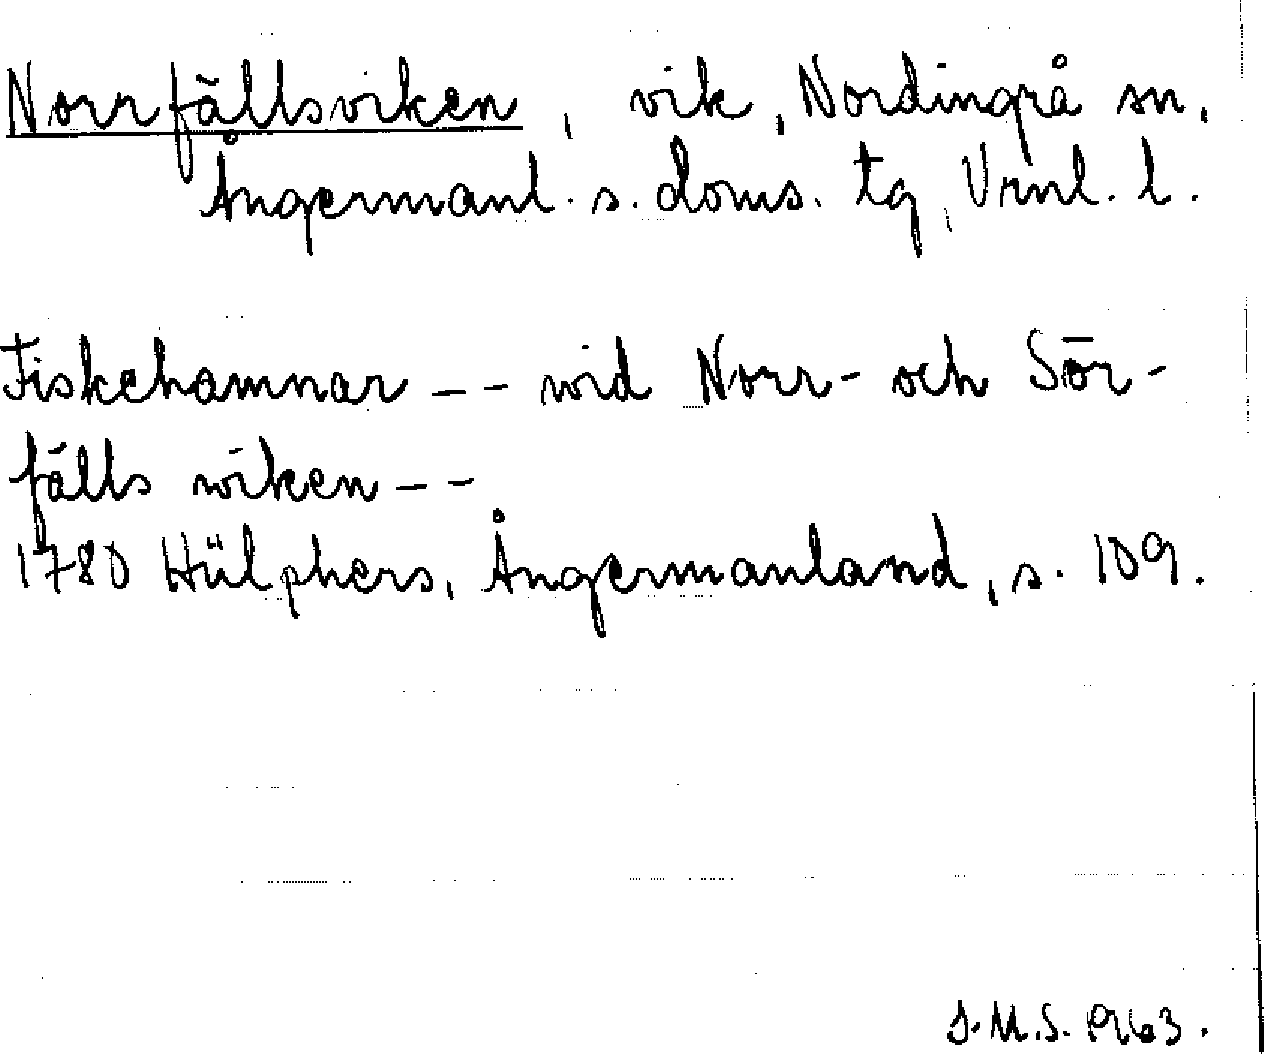 Norrfällsviken, vik, Nordingrå sn,
Ångermanl. s. doms. tg, Vrnl. l.
Fiskehamnar -- wid Norr- och Sör-
fälls wiken --
1780 Hülphers, Ångermanland, s. 109.
J.M.S. 1963.